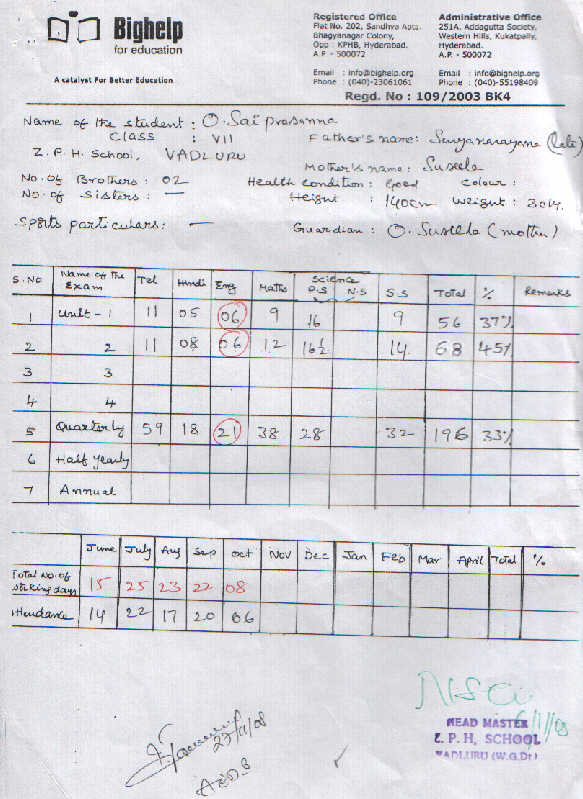 Bighelp
for education
A catalyst For Better Education
Registered Office
Flat No. 202, Sandhya Apts.
Bhagyanagar Colony,
Opp : KPHB, Hyderabad.
A.P. - 500072
Email : info@bighelp.org
Phone : (040)-23061061
Administrative Office
251A, Addagutta Society,
Western Hills, Kukatpally,
Hyderabad.
A.P. - 500072
Email : info@bighelp.org
Phone : (040)-55198409
Regd. No : 109/2003 BK4
Name of the student : O. Sai prasanna
Class : VII Father's name: Suryanarayana (late)
Z. P. H School, VADLURU
Mother's name: Suseela
No. of Brothers : 02 Health condition: Good Colour :
No. of Sisters : — Height : 140cm Weight : 30
Sports particulars: — Guardian : O. Suseela (mother)
S.No Name of the Exam Tel Hindi Eng Maths Science P.S N.S S.S Total % Remarks
1 Unit - 1 11 05 06 9 16 9 56 37%
2 2 11 08 06 12 16½ 14 68 45%
3 3
4 4
5 Quarterly 59 18 21 38 28 32 196 33%
6 Half yearly
7 Annual
June July Aug Sep Oct Nov Dec Jan Feb Mar April Total %
Total No. of 15 25 23 22 08
working days
Attendance 14 22 17 20 06
HEAD MASTER
Z. P. H, SCHOOL
VADLURU (W.G.Dt)
27/11/08